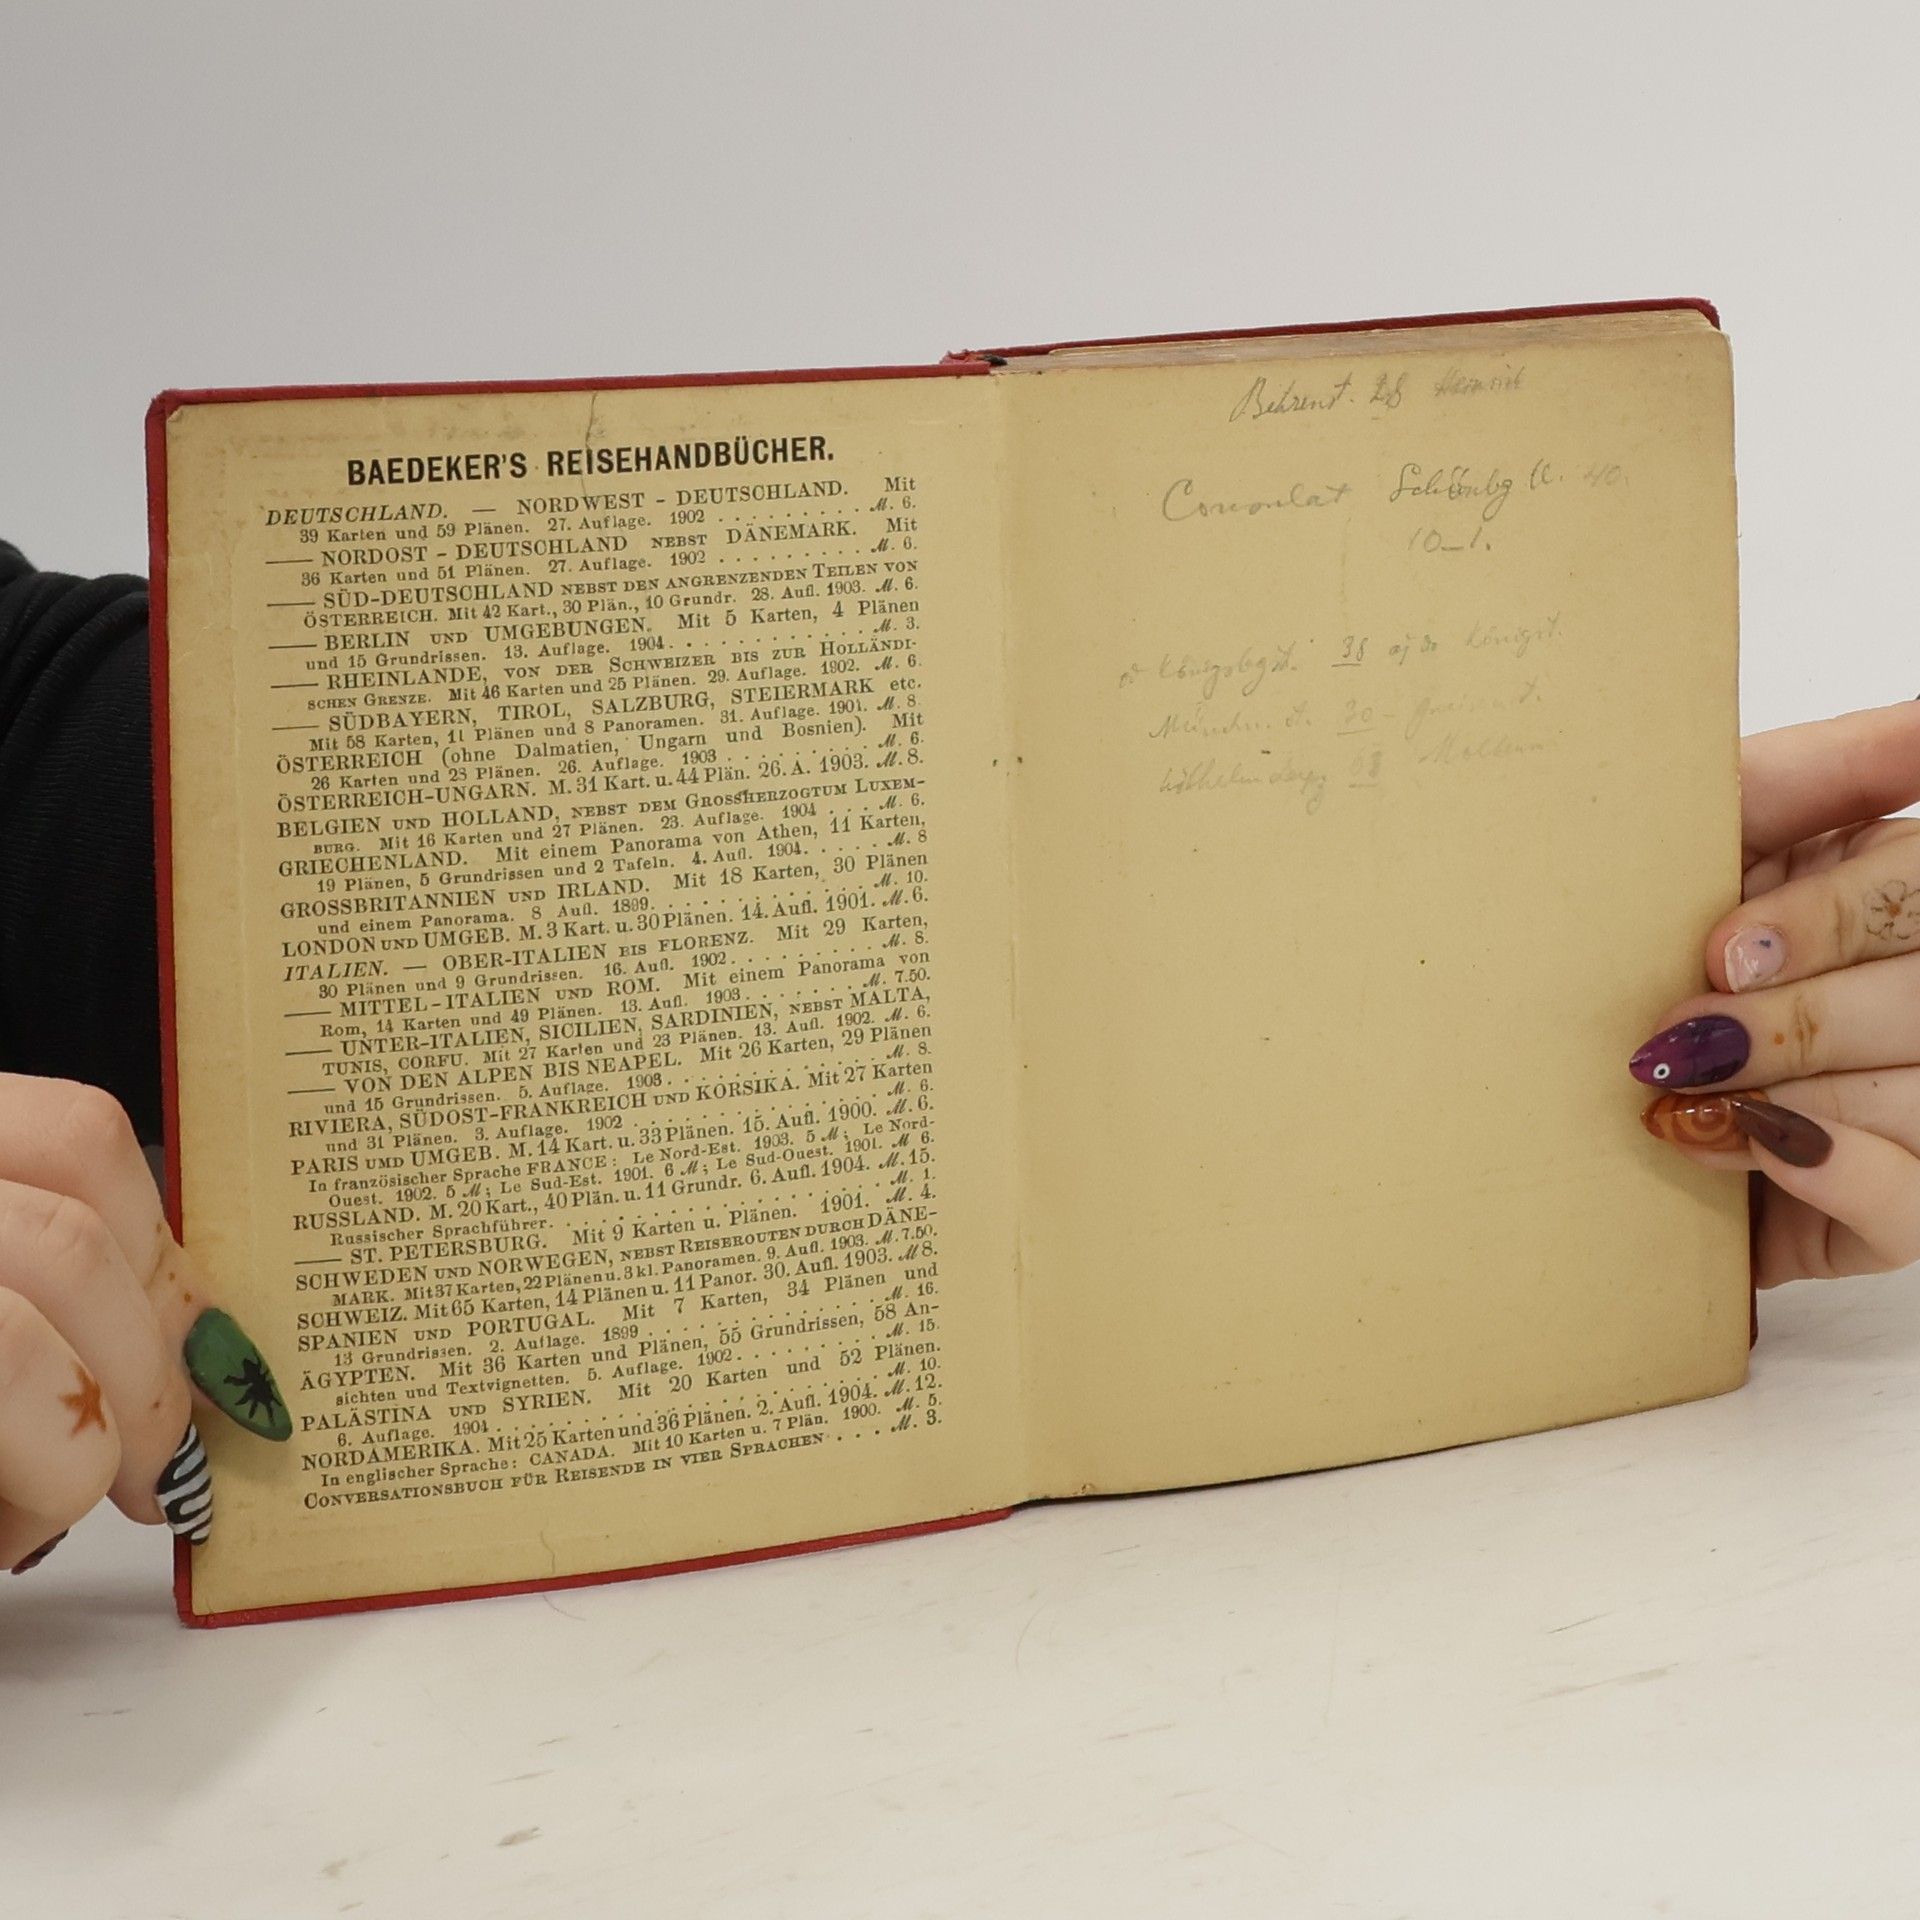 BAEDEKER'S REISEHANDBÜCHER.
DEUTSCHLAND. — NORDWEST - DEUTSCHLAND. Mit
39 Karten und 59 Plänen. 27. Auflage. 1902 . . . . . . . . . M. 6.
—— NORDOST - DEUTSCHLAND NEBST DÄNEMARK. Mit
36 Karten und 51 Plänen. 27. Auflage. 1902 . . . . . . . . . M. 6.
—— SÜD-DEUTSCHLAND NEBST DEN ANGRENZENDEN TEILEN VON
ÖSTERREICH. Mit 42 Kart., 30 Plän., 10 Grundr. 28. Aufl. 1903. M. 6.
—— BERLIN UND UMGEBUNGEN. Mit 5 Karten, 4 Plänen
und 15 Grundrissen. 13. Auflage. 1904. . . . . . . . . . . M. 3.
—— RHEINLANDE, VON DER SCHWEIZER BIS ZUR HOLLÄNDI-
SCHEN GRENZE. Mit 46 Karten und 25 Plänen. 29. Auflage. 1902. M. 6.
—— SÜDBAYERN, TIROL, SALZBURG, STEIERMARK etc.
Mit 58 Karten, 11 Plänen und 8 Panoramen. 31. Auflage. 1901. M. 8.
ÖSTERREICH (ohne Dalmatien, Ungarn und Bosnien). Mit
26 Karten und 28 Plänen. 26. Auflage. 1903 . . . . . . . . M. 6.
ÖSTERREICH-UNGARN. M. 31 Kart. u. 44 Plän. 26. A. 1903. M. 8.
BELGIEN UND HOLLAND, NEBST DEM GROSSHERZOGTUM LUXEM-
BURG. Mit 16 Karten und 27 Plänen. 23. Auflage. 1904 . . . M. 6.
GRIECHENLAND. Mit einem Panorama von Athen, 11 Karten,
19 Plänen, 5 Grundrissen und 2 Tafeln. 4. Aufl. 1904. . . . . . M. 8
GROSSBRITANNIEN UND IRLAND. Mit 18 Karten, 30 Plänen
und einem Panorama. 8 Aufl. 1899. . . . . . . . . . . . M. 10.
LONDON UND UMGEB. M. 3 Kart. u. 30 Plänen. 14. Aufl. 1901. M. 6.
ITALIEN. — OBER-ITALIEN BIS FLORENZ. Mit 29 Karten,
30 Plänen und 9 Grundrissen. 16. Aufl. 1902. . . . . . . . M. 8.
—— MITTEL-ITALIEN UND ROM. Mit einem Panorama von
Rom, 14 Karten und 49 Plänen. 13. Aufl. 1903. . . . . . . M. 7.50.
—— UNTER-ITALIEN, SICILIEN, SARDINIEN, NEBST MALTA,
TUNIS, CORFU. Mit 27 Karten und 23 Plänen. 13. Aufl. 1902. M. 6.
—— VON DEN ALPEN BIS NEAPEL. Mit 26 Karten, 29 Plänen
und 15 Grundrissen. 5. Auflage. 1903. . . . . . . . . . . M. 8.
RIVIERA, SÜDOST-FRANKREICH UND KORSIKA. Mit 27 Karten
und 31 Plänen. 3. Auflage. 1902 . . . . . . . . . . . . . M. 6.
PARIS UMD UMGEB. M. 14 Kart. u. 33 Plänen. 15. Aufl. 1900. M. 6.
In französischer Sprache FRANCE: Le Nord-Est. 1903. 5 M; Le Nord-
Ouest. 1902. 5 M; Le Sud-Est. 1901. 6 M; Le Sud-Ouest. 1901. M 6.
RUSSLAND. M. 20 Kart., 40 Plän. u. 11 Grundr. 6. Aufl. 1904. M. 15.
Russischer Sprachführer. . . . . . . . . . . . . . . . . M. 1.
—— ST. PETERSBURG. Mit 9 Karten u. Plänen. 1901. M. 4.
SCHWEDEN UND NORWEGEN, NEBST REISEROUTEN DURCH DÄNE-
MARK. Mit 37 Karten, 22 Plänen u. 3 kl. Panoramen. 9. Aufl. 1903. M. 7.50.
SCHWEIZ. Mit 65 Karten, 14 Plänen u. 11 Panor. 30. Aufl. 1903. M 8.
SPANIEN UND PORTUGAL. Mit 7 Karten, 34 Plänen und
13 Grundrissen. 2. Auflage. 1899 . . . . . . . . . . . . M. 16.
ÄGYPTEN. Mit 36 Karten und Plänen, 55 Grundrissen, 58 An-
sichten und Textvignetten. 5. Auflage. 1902. . . . . . . . . M. 15.
PALÄSTINA UND SYRIEN. Mit 20 Karten und 52 Plänen.
6. Auflage. 1904 . . . . . . . . . . . . . . . . . . . . M. 10.
NORDAMERIKA. Mit 25 Karten und 36 Plänen. 2. Aufl. 1904. M. 12.
In englischer Sprache: CANADA. Mit 10 Karten u. 7 Plän. 1900. M. 5.
CONVERSATIONSBUCH FÜR REISENDE IN VIER SPRACHEN . . . M. 3.
Behrenst. 28
Consulat 40.
10–1.
38 Königst.
30